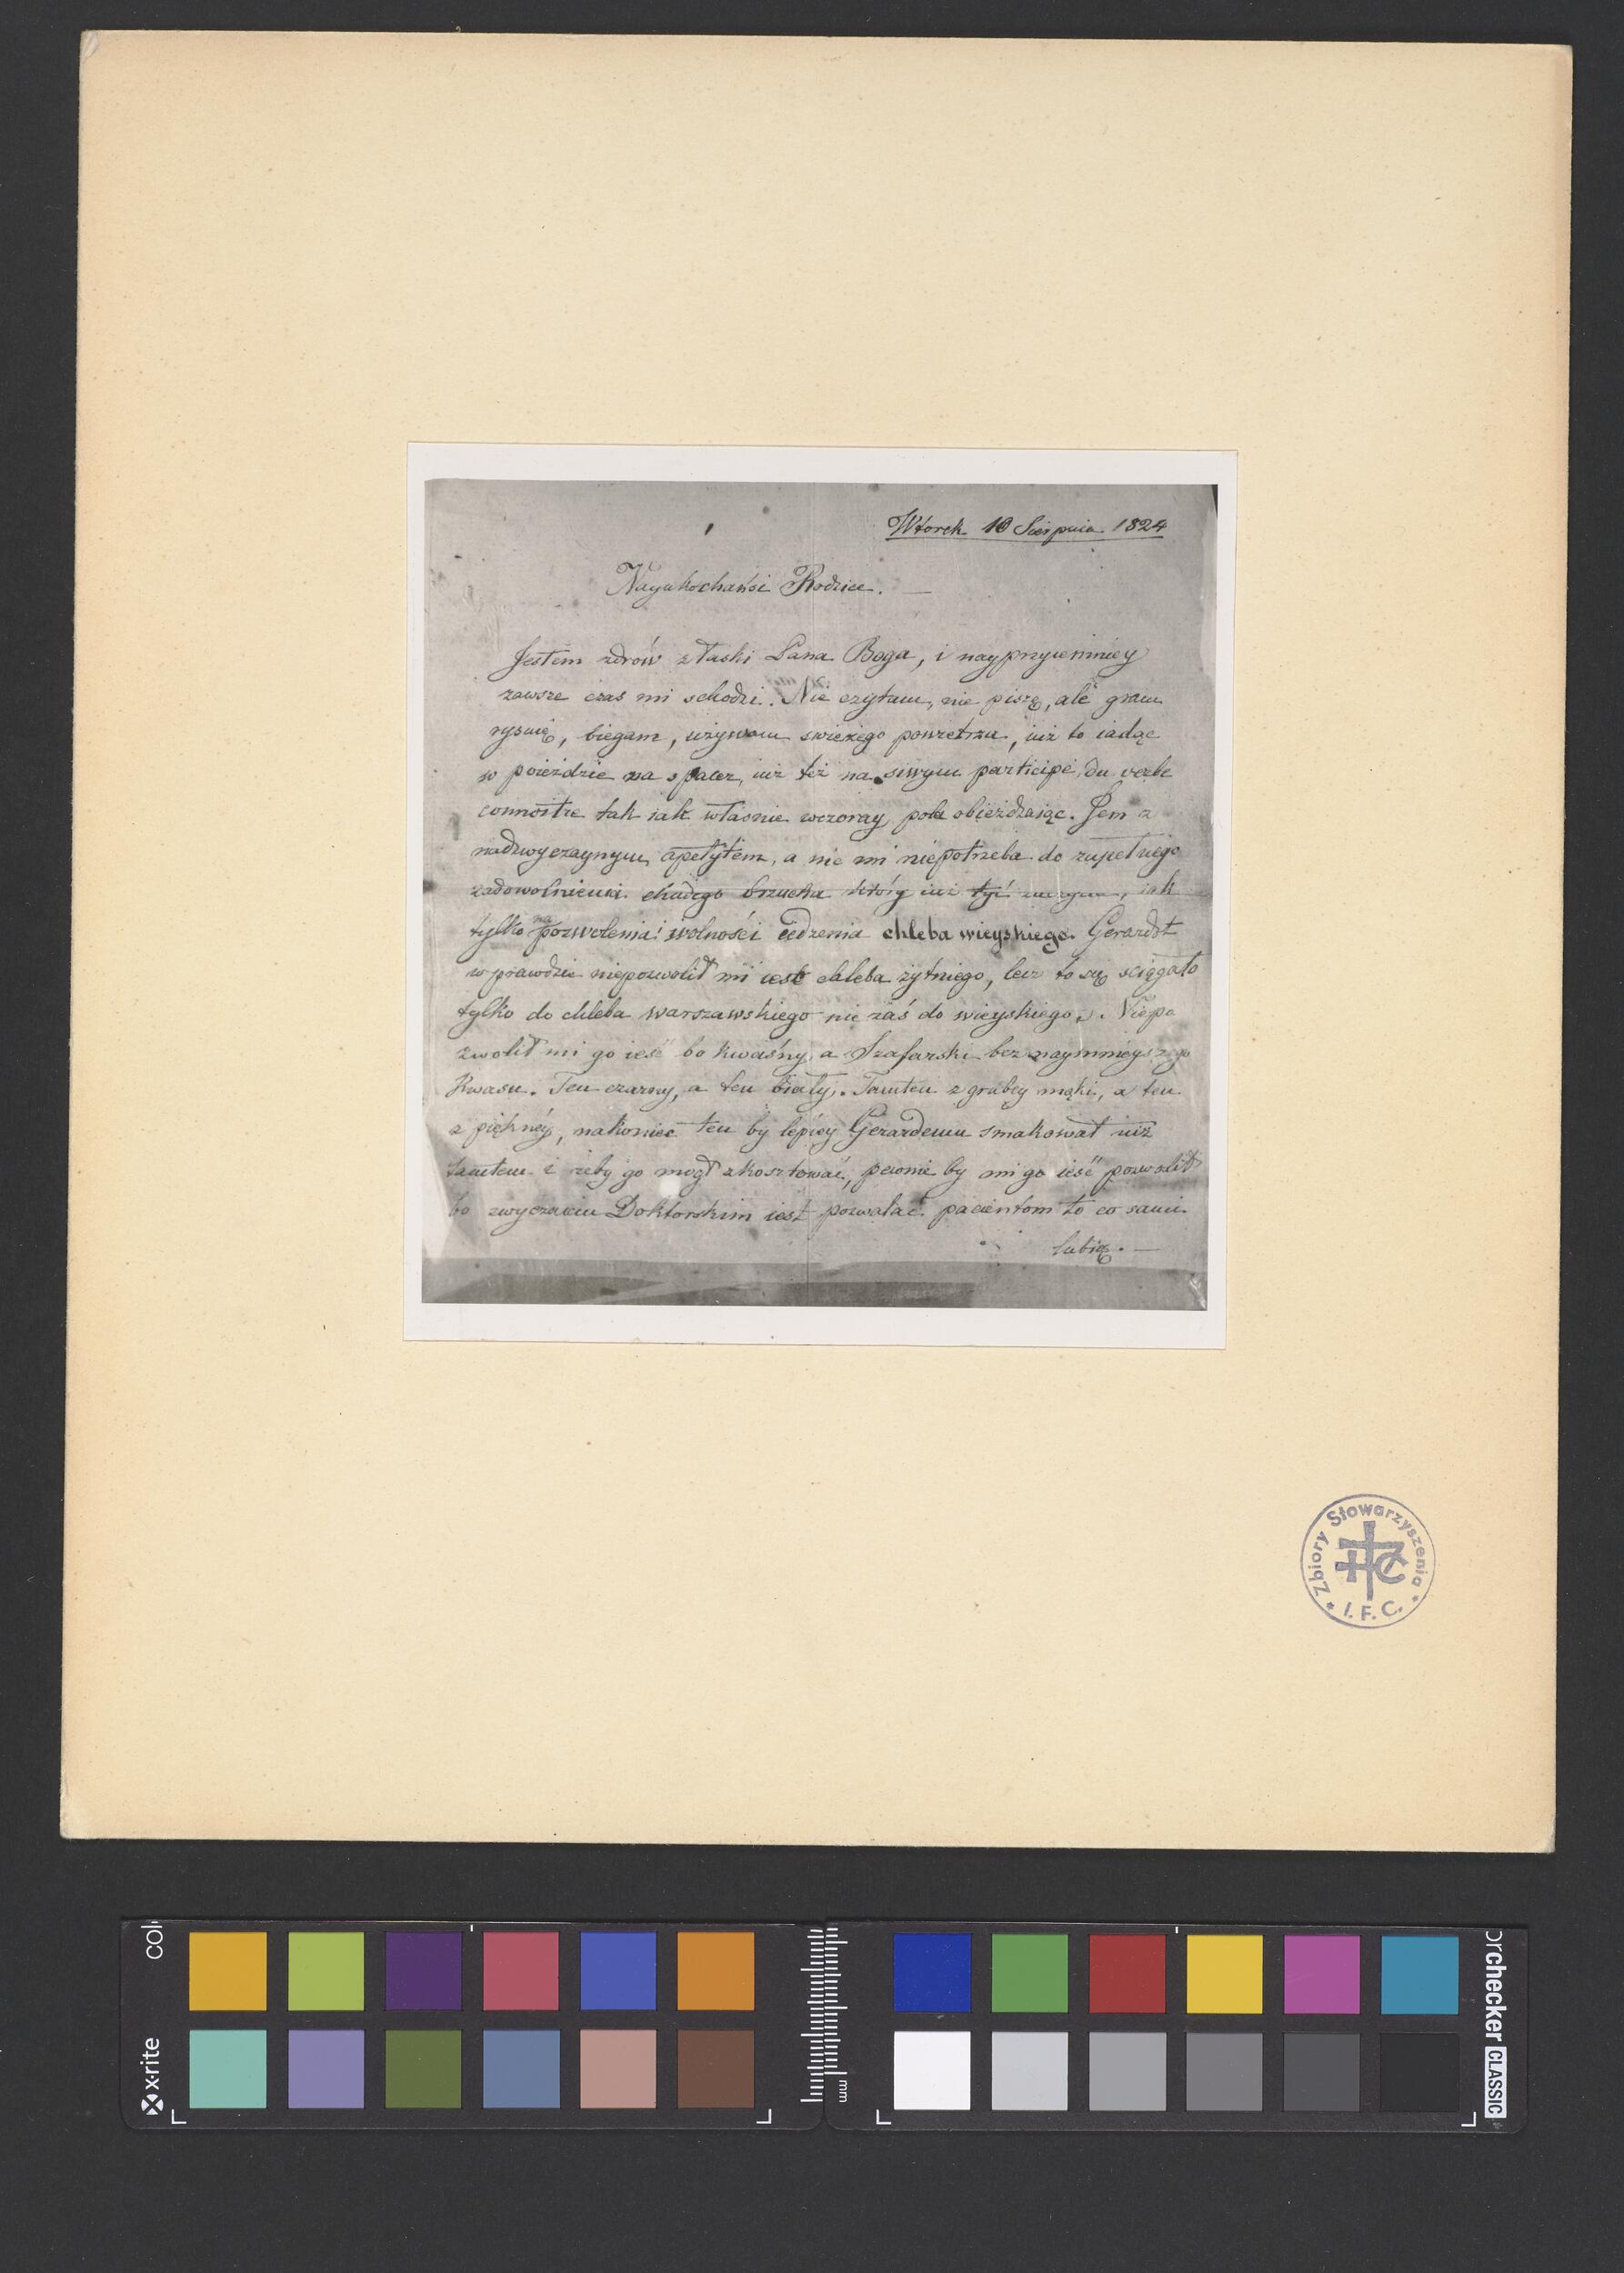 Wtorek 10 Sierpnia 1824
Nayukochańsi Rodzice. —
Jestem zdrów z łaski Pana Boga, i nayprzyiemniey
zawsze czas mi schodzi. Nie czytam, nie piszę, ale gram
rysuię, biegam, używam swieżego powietrza, iuż to iadąc
w poieździe na spacer, iuż też na siwym participe du verbe
connoitre tak iak właśnie wczoray pola obieżdzaiąc. Jem z
nadzwyczaynym apetytem, a nic mi niepotrzeba do zupełnego
zadowolnienia chudego brzucha który iuż tyć zaczyna, iak
tylko na pozwolenia i wolności iedzenia chleba wieyskiego. Gerardot
wprawdzie niepozwolił mi ieść chleba żytniego, lecz to się sciągało
tylko do chleba warszawskiego nie zaś do wieyskiego. Niepo
zwolił mi go ieść bo kwaśny, a Szafarski bez naymnieyszego
Kwasu. Ten czarny, a ten biały. Tamten z grubey mąki, a ten
z piękney, nakoniec ten by lepiey Gerardemu smakował niż
tamten i żeby go mógł zkosztować, pewnie by mi go ieść pozwolił
bo zwyczaiem Doktorskim iest pozwalać pacientom to co sami
lubią. —
Zbiory Stowarzyszenia * I. F. C. *
TiFC
x·rite
col
mm
orchecker CLASSIC